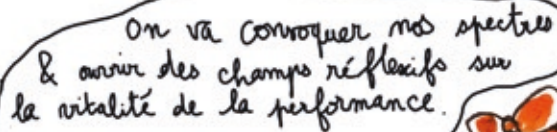 On va convoquer nos spectres
& ouvrir des champs réflexifs sur
la vitalité de la performance.